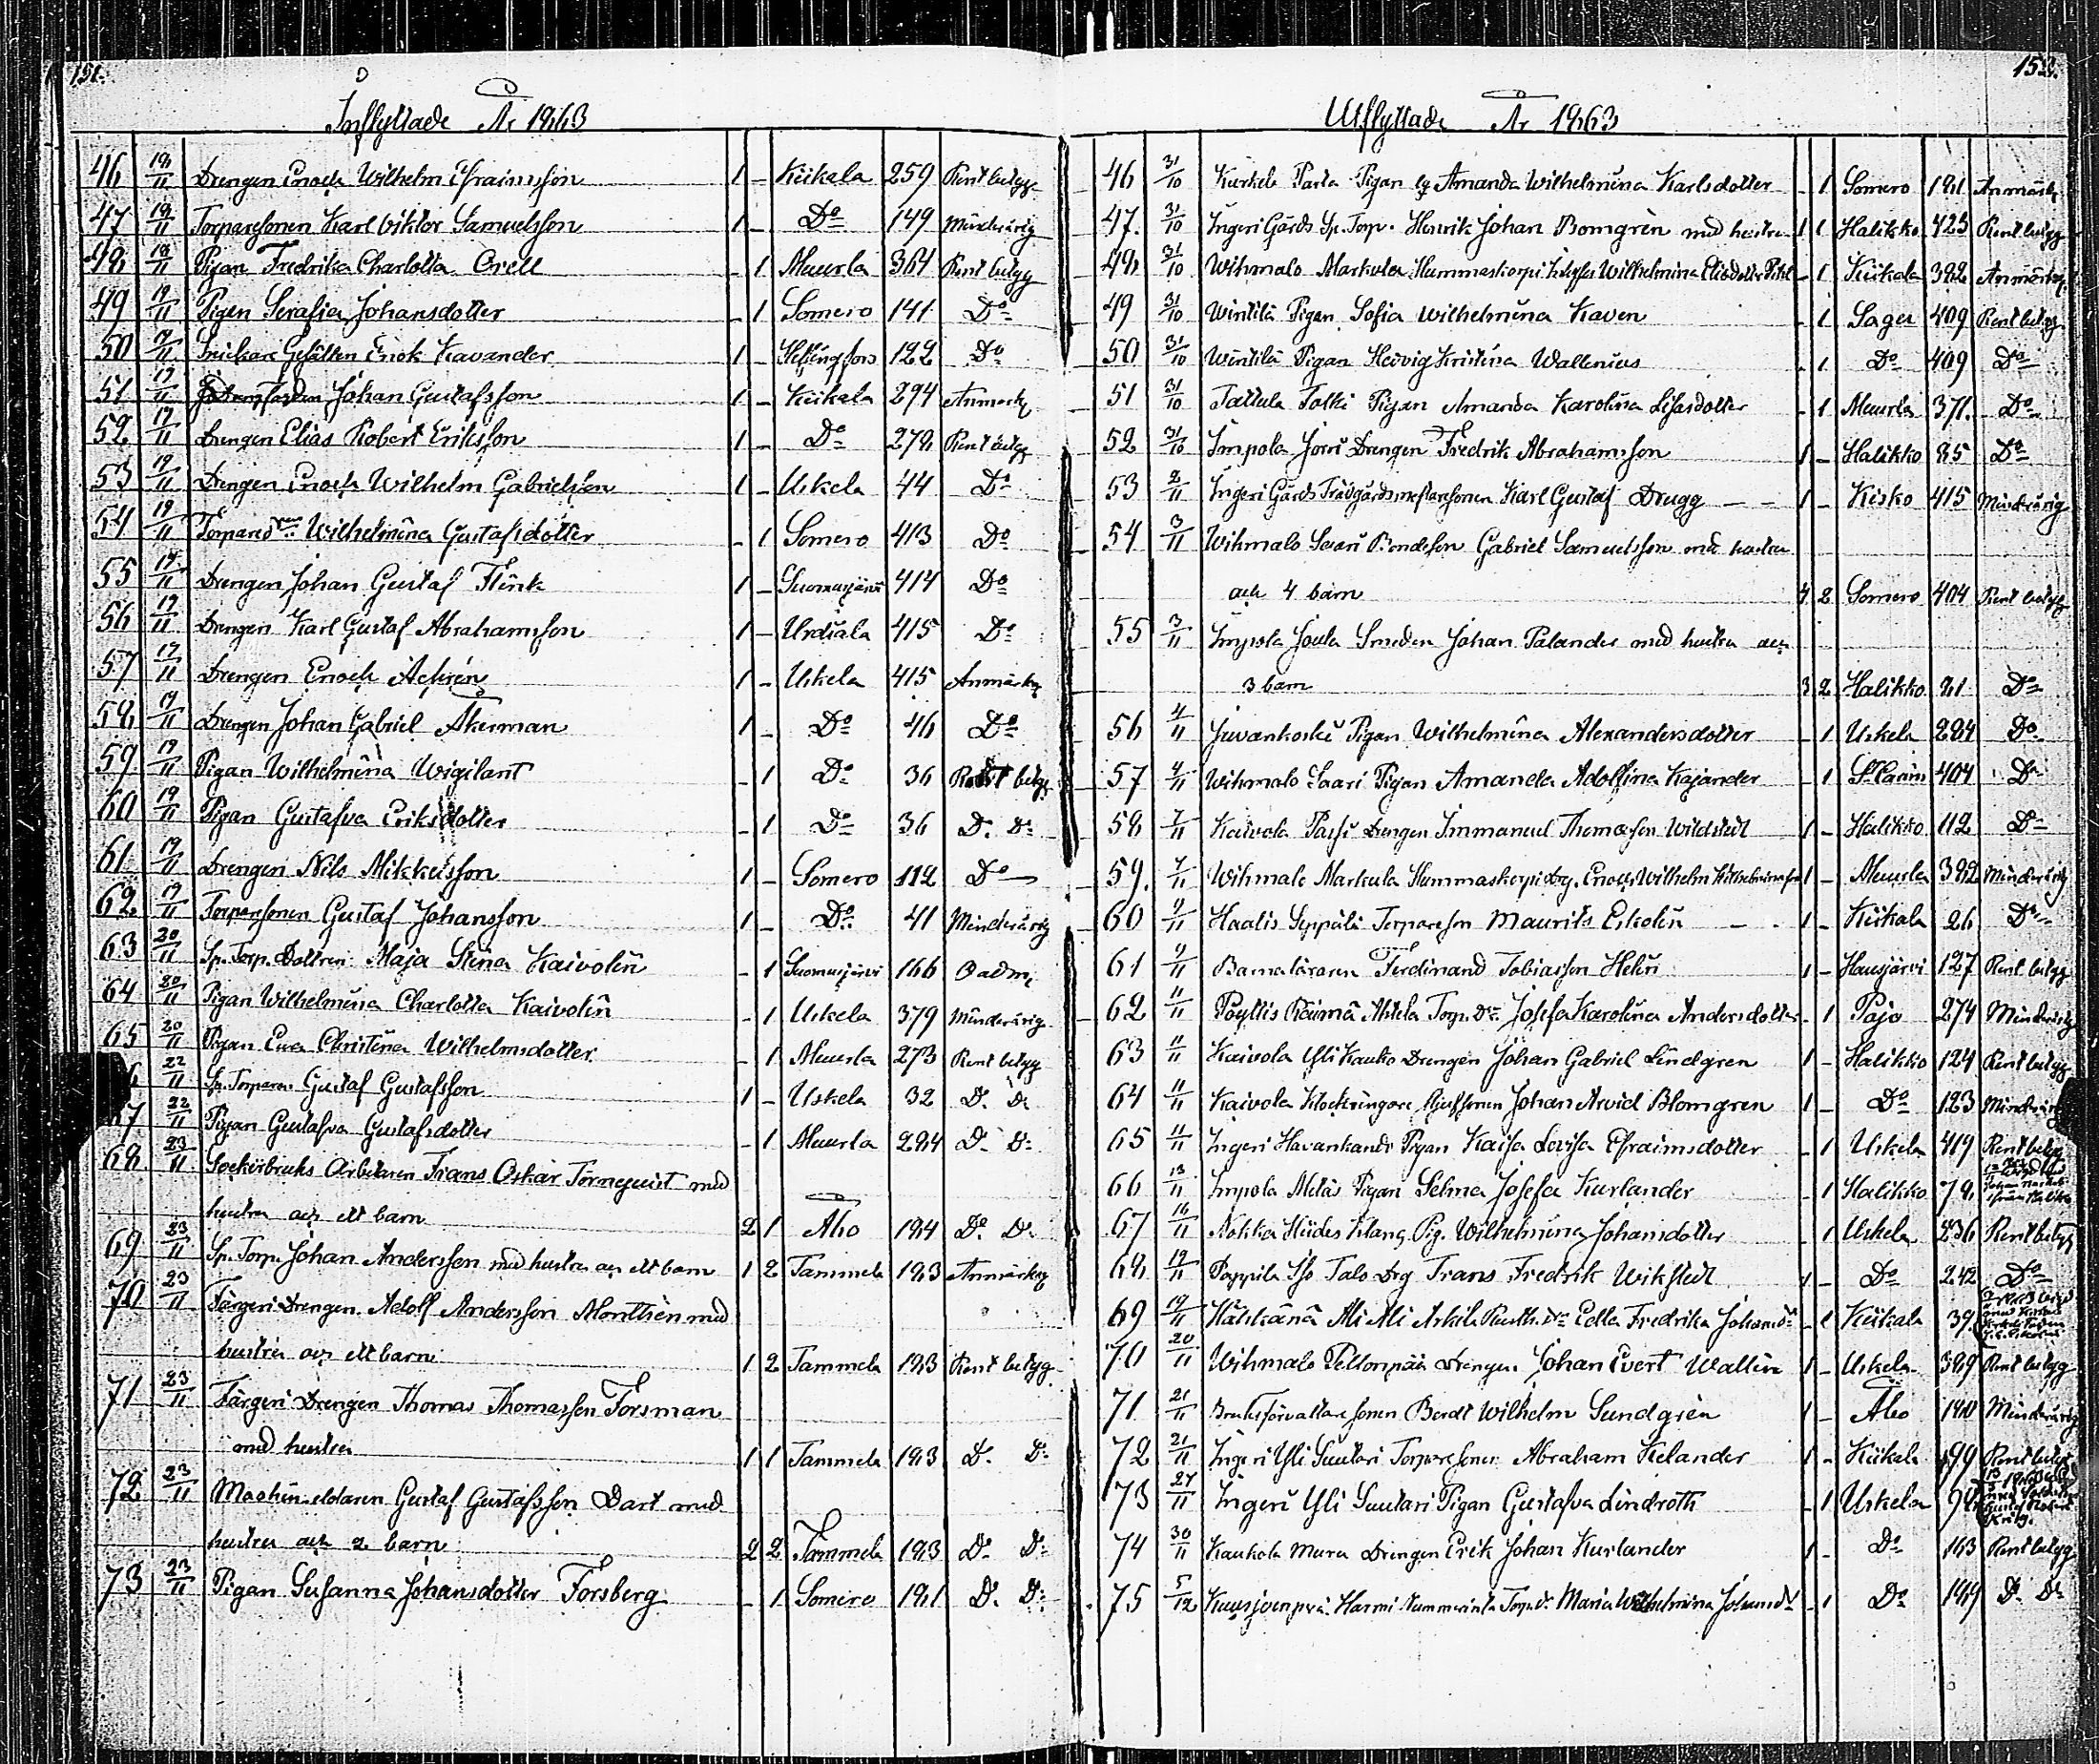 151.
Inflyttade År 1863
46 19/11 Drengen Enoch Wilhelm Efraimsson 1 – Kiikala 259 Rent betyg
47 19/11 Torparesonen Karl Viktor Samuelsson 1 – Do 149 Minderårig
48 19/11 Pigan Fredrika Charlotta Orell – 1 Muurla 364 Rent betyg
49 19/11 Pigan Serafia Johansdotter – 1 Somero 141 Do
50 19/11 Snickare Gesällen Erick Kavander 1 – Helsingfors 122 Do
51 19/11 Johan Gustafsson 1 – Kiikala 294 Anmärk
52 19/11 Drengen Elias Robert Eriksson 1 – Do 278 Rent betyg
53 19/11 Drengen Enoch Wilhelm Gabrielsson 1 – Uskela 44 Do
54 19/11 Wilhelmina Gustafsdotter – 1 Somero 413 Do
55 19/11 Drengen Johan Gustaf Flink 1 – Suomusjärvi 414 Do
56 19/11 Drengen Karl Gustaf Abrahamsson 1 – Urdiala 415 Do
57 19/11 Drengen Enoch Achrén 1 – Uskela 415 Anmärkg
58 19/11 Drengen Johan Gabriel Åkerman 1 – Do 46 Do
59 19/11 Pigan Wilhelmina Wigilant – 1 Do 36 Rent betyg
60 19/11 Pigan Gustafva Eriksdotter – 1 Do 36 D. D:
61 19/11 Drengen Nils Mikkelsson 1 – Somero 112 Do
62 19/11 Torparesonen Gustaf Johansson 1 – Do 41 Minderårig
63 20/11 Sp. Torp. Dottren Maja Stina Kaivolin – 1 Suomusjärvi 166
64 20/11 Pigan Wilhelmina Charlotta Kaivolin – 1 Uskela 379 Minderårig
65 20/11 Pigan Eva Christina Wilhelmsdotter – 1 Muurla 273 Rent betyg
6 22/11 Sp. Torparen Gustaf Gustafsson 1 – Uskela 32 D. D:
67 22/11 Pigan Gustafva Gustafsdotter – 1 Muurla 284 D. D:
68 23/11 Sockerbruks Arbetaren Frans Oskar Törnequist med
hustru och ett barn 2 1 Åbo 194 Do D:
69 23/11 Sp. Torp. Johan Andersson med hustru och ett barn 1 2 Tammela 193 Anmärkg
70 23/11 Färgeri Drengen Adolf Andersson Monthén med
hustru och ett barn 1 2 Tammela 193 Rent betyg
71 23/11 Färgeri Drengen Thomas Thomasson Forsman
med hustru 1 1 Tammela 193 D. D:
72 23/11 Maskin eldaren Gustaf Gustafsson Dart med
hustru och 2 barn 2 2 Tammela 193 D. D:
73 23/11 Pigan Susanna Johansdotter Forsberg – 1 Somero 181 D. D:
152.
Utflyttade År 1863
46 31/10 Kurkela Parta Pigan Amanda Wilhelmina Karlsdotter – 1 Somero 181 Anmärkg
47. 31/10 Ingeri Gårds Sp. Torp. Henrik Johan Bomgrén med hustru 1 1 Halikko 423 Rent betyg
48 31/10 Wihmalo Markula Hummaskorpi Wilhelmina – 1 Kiikala 382 Anmärkg
49 31/10 Wintilä Pigan Sofia Wilhelmina Kaven – 1 Sagu 409 Rent betyg
50 31/10 Wintilä Pigan Hedvig Kristina Wallenius – 1 Do 409 Do
51 31/10 Tattula Talki Pigan Amanda Karolina – 1 Muurla 371. Do
52 31/10 Impola Jorri Drengen Fredrik Abrahamsson 1 – Halikko 85 Do
53 2/11 Ingeri Gårds Trädgårdsmästaresonen Karl Gustaf Drugg – – 1 – Kisko 415 Minderårig
54 3/11 Wihmalo Saari Bondeson Gabriel Samuelsson med hustru
och 4 barn 4 2 Somero 404 Rent betyg
55 3/11 Impola Joula Smeden Johan Palander med hustru och
3 barn 3 2 Halikko 81 Do
56 4/11 Juvankoski Pigan Wilhelmina Alexandersdotter – 1 Uskela 284 Do
57 4/11 Wihmalo Saari Pigan Amanda Adolfina Kajander – 1 St. Karins 404 Do
58 7/11 Kaivola Passi Drengen Immanuel Thomasson Wildstedt 1 – Halikko 112 Do
59. 7/11 Wihmalo Markula Hummaskorpi drg. Enoch Wilhelm 1 – Muurla 382 Minderårig
60 9/11 Haalis Seppälä Torpareson Maurits Eskolin – 1 – Kiikala 26 Do
61 9/11 Barnaläraren Ferdinand Tobiasson Helin 1 – Hausjärvi 127 Rent betyg
62 11/11 Pöytiö Torp. Dr. Josefa Karolina Andersdotter – 1 Pojo 274 Minderårig
63 11/11 Kaivola Yli Kauko Drengen Johan Gabriel Lindgren 1 – Halikko 124 Rent betyg
64 11/11 Kaivola Klockringare Johan Arvid Blomgren 1 – Do 123 Minderårig
65 11/11 Ingeri Havankando Pigan Kaisa Lovisa Efraimsdotter – 1 Uskela 419 Rent betyg
66 13/11 Impola Metäs Pigan Selma Josefa Kurlander – 1 Halikko 78
67 16/11 Nokka Hiides Klang Pig. Wilhelmina Johansdotter – 1 Uskela 236 Rent betyg
68 19/11 Pappila Iso Talo Drg Frans Fredrik Wikstedt 1 – Do 242 Do
69 19/11 Ali Ali Arkila Edla Fredrika Johansdr – 1 Kiikala 39
70 20/11 Wihmalo Peltonpää Drengen Johan Evert Wallin 1 – Uskela 389 Rent betyg
71 21/11 Bruksförvaltaresonen Berdt Wilhelm Sundgrén 1 – Åbo 140 Minderårig
72 21/11 Ingeri Yli Suutari Torparesonen Abraham Kelander 1 – Kiikala 499 Rent betyg
73 27/11 Ingeri Yli Suutari Pigan Gustafva Lindroth – 1 Uskela 94
74 30/11 Kaukola Mura Drengen Erik Johan Kurlander 1 – Do 163 Rent betyg
75 5/12 Kuusjoenperä Harmi Nummenta Torp. dr Maria Wilhelmina Johansdr – 1 Do 149 D. D: